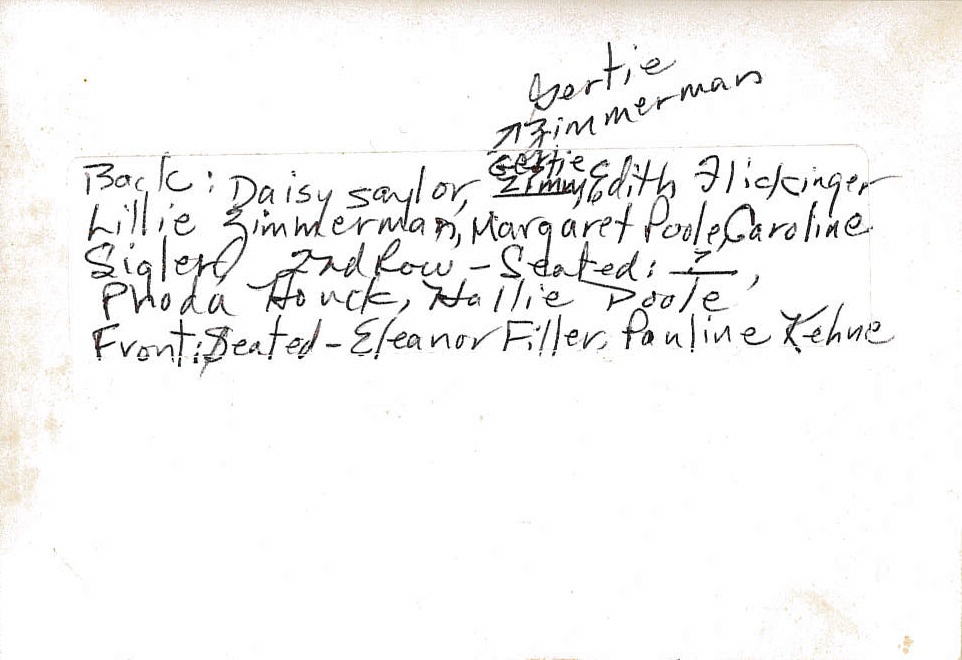 Gertie
Zimmerman
Back: Daisy Saylor, Gertie Zimm, Edith Flickinger
Lillie Zimmerman, Margaret Poole, Caroline
Sigler 2nd Row - Seated: ?,
Rhoda Houck, Hallie Poole
Front: Seated - Eleanor Filler, Pauline Kehne